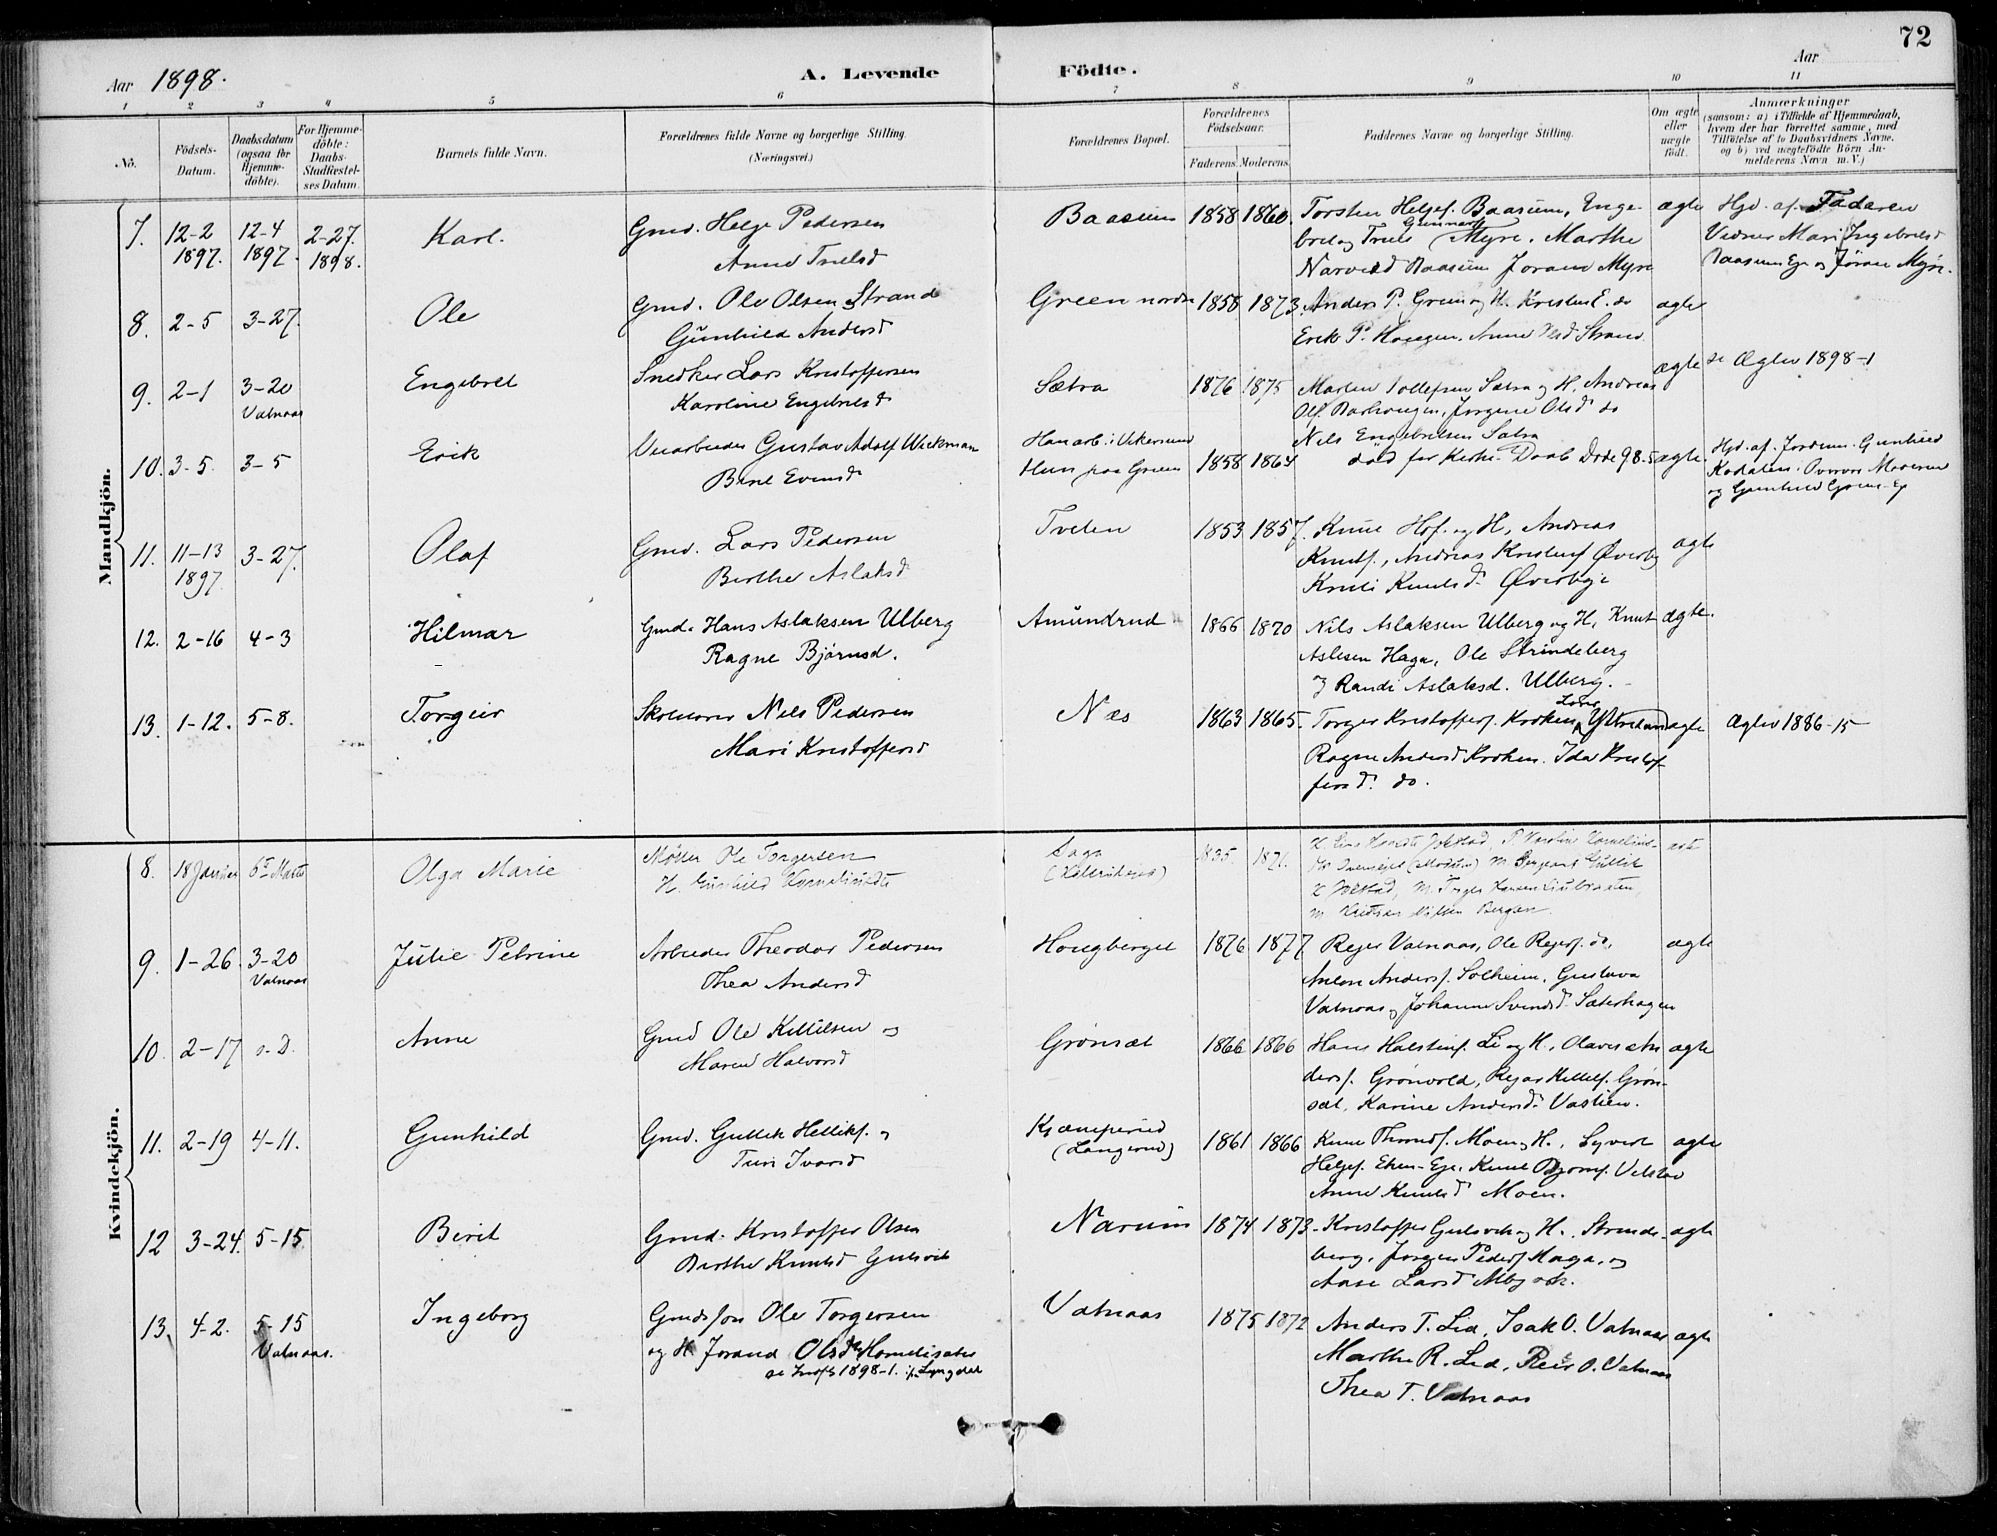 72
Aar 1898.
A. Levende Födte.
Aar
1 2 3 4 5 6 7 8 9 10 11
Nô.
Födsels-Datum.
Daabsdatum (ogsaa for Hjemme-döbte).
For Hjemme-döbte: Daabs-Stadfæstel-ses Datum.
Barnets fulde Navn.
Forældrenes fulde Navne og borgerlige Stilling. (Næringsvei.)
Forældrenes Bopæl.
Forældrenes Födselsaar.
Faderens Moderens
Faddernes Navne og borgerlige Stilling.
Om ægte eller uægte födt.
Anmærkninger
(saasom: a) i Tilfælde af Hjemmedaab,
hvem der har forrettet samme, med
Tilföielse af to Daabsvidners Navne,
og b) ved uægtefödte Börn An-
melderens Navn m. V.)
Mandkjön.
7. 12-2 1897. 12-4 1897. 2-27. 1898. Karl.
Gmd. Helge Pedersen
Anne Truelsd
Baasum 1858 1860.
Torsten Helgef. Baasum, Enge-
bret og Truls Gunnarsf. Myre. Marthe
Narvesd Baasum Joran Myre
ægte
Hjd. af. Faderen
Vidner Mari Ingebretsd
Baasum Eje og Jöran Myre.
8. 2-5 3-27. Ole
Gmd. Ole Olsen Strand
Gunhild Andersd
Green nordre 1858 1873.
Anders P. Green og H. Kristine E. do
Erik P. Haugen. Anne Olsd Strand
ægte
9. 2-1 3-20 Vatnaas Engebret
Snedker Lars Kristoffersen
Karoline Engebretsd
Sætra 1876 1875
Marten Tollefsen Sætra og H. Andreas
Olsf. Barhaugen, Jorgine Olsd do
Nils Engebretsen Sætra
ægte
se Ægtev 1898-1
10. 3-5. 3-5 Erik
Veiarbeider Gustav Adolf Wickman
Berit Evensd
Han arb. i Vikersund
Hun paa Green
1858 1864
död för Kirke-Daab Döde 98.5
ægte.
Hjd. af. Jordm. Gunhild
Kadalen. Overvar Moderen
og Gunhild Green-Eje
11. 11-13 1897 3-27. Olaf
Gmd. Lars Pedersen
Berthe Aslaksd
Tveten 1853 1857.
Knut Hof. og H, Andreas
Knutsf., Andreas Kristensf Överby
Kristi Knutsd Överbye
ægte
12. 2-16 4-3 Hilmar
Gmd. Hans Aslaksen Ulberg
Ragne Björnsd.
Amundrud 1866 1870
Nils Aslaksen Ulberg og H, Knut
Aslesen Haga, Ole Strindeberg
Randi Aslaksd. Ulberg.
ægte.
13. 1-12. 5-8. Torgeir
Skolelærer Nils Pedersen
Mari Kristoffersd
Næs 1863 1865.
Torger Kristoffersf. Kroken,
Ragne Andersd Kroken. Ida Kristof-
fersd. do.
ægte
Ægtev 1886-15
Kvindekjön.
8. 18 Januar 6te Marts Olga Marie
Möller Ole Torgersen
H. Gunhild Korneliusdtr
Saga 1835. 1871.
ægte
9. 1-26. 3-20 Vatnaas Julie Petrine
Arbeider Theodor Pedersen
Thea Andersd
Hougberget 1876 1877
Rejer Vatnaas, Ole Rejersf. do,
Anton Andersf. Solheim, Gustava
Vatnaas og Johanne Svendsd. Sæterhagen
ægte
10. 2-17 s.D. Anne
Gmd Ole Kittilsen og
Maren Halvorsd
Grönsæt 1866 1866
Hans Halstensf. Li og H., Olaves An-
dersf. Grönvold, Rejar Kittelsf. Grön-
sæt, Karine Andersd. Vaslien.
ægte
11. 2-19 4-11. Gunhild
Gmd. Gullek Helliksf. og
Turi Ivarsd
Kjæmperud (Langerud) 1861 1866
Knut Throndsf. Moen og H., Syvert
Helgesf. Eken-Eje, Knut Bjornsf. Velstad
Anne Knutsd Moen.
ægte
12 3-24. 5-15. Berit
Gmd. Kristoffer Olsen
Berthe Knutsd Gulsvik
Narum 1874 1873
Kristoffer Gulsvik og H., Strinde-
berg, Jorgen Pedersf Haga, og
Aase Larsd
ægte
13. 4-2. 5-15 Vatnaas. Ingeborg
Gmdsfon Ole Torgersen
og H. Jorand Olsdtr Homelisæter
se Indfl 1898-1. i/fra Lyngdal
Vatnaas 1875 1872
Anders T. Lid, Isak O. Vatnaas
Marthe R. Lid, Reier O. Vatnaas
Thea T. Vatnaas
ægte